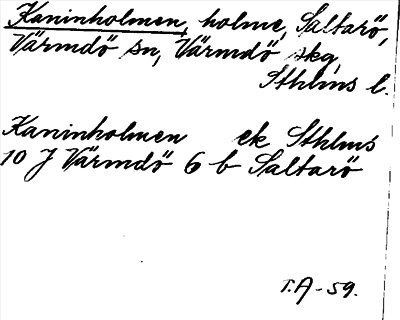 Kaninholmen, holme, Saltarö,
Värmdö sn, Värmdö skg,
Sthlms l.
Kaninholmen ek Sthlms
10 J Värmdö 6 b Saltarö
T.A-59.